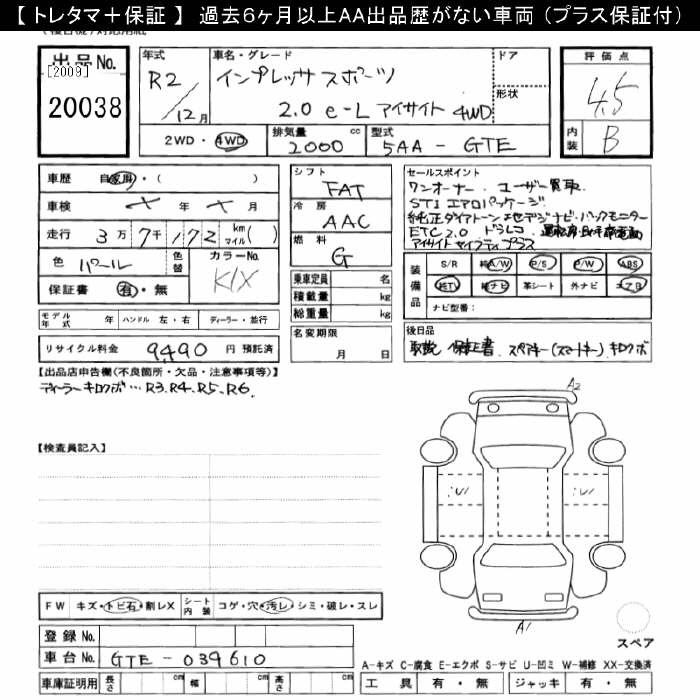 【 トレタマ＋保証 】 過去６ヶ月以上ＡＡ出品歴がない車両（プラス保証付）
出品 No.
[2009]
20038
年式 車名・グレード ドア
R2/12月 インプレッサ スポーツ
2.0 e-L アイサイト 4WD
形状
2WD・4WD 排気量 2000 cc 型式 5AA - GTE
評価点
4.5
内装 B
車歴 自家用・( )
車検 × 年 × 月
走行 3万7千172 km(マイル)
色 パール 色替 カラーNo. K1X
保証書 有・無
モデル年式 年 ハンドル 左・右 ディーラー・並行
リサイクル料金 9490 円 預託済
シフト FAT
冷房 AAC
燃料 G
乗車定員 名
積載量 kg
総重量 kg
名変期限
月 日
セールスポイント
ワンオーナー. ユーザー買取
STI エアロパッケージ
純正ダイアトーン 8セデジナビ. バックモニター
ETC2.0 ドラレコ.
アイサイトセイフティプラス
装備品 S/R 純A/W P/S P/W ABS
純TV 純ナビ 革シート 外ナビ エアB
ナビ型番：
後日品
取説 保証書. スペアキー(スマートキー) キロクボ
【出品店申告欄(不良箇所・欠品・注意事項等)】
ディーラーキロクボ…R3.R4.R5.R6.
【検査員記入】
A2
A1
スペア
FW キズ・トビ石・割レX シート内装 コゲ・穴・汚レ・シミ・破レ・スレ
登録 No.
車台 No. GTE - 039610
車庫証明用 長さ cm 幅 cm 高さ cm
A-キズ C-腐食 E-エクボ S-サビ U-凹ミ W-補修 XX-交換済
工具 有・無 ジャッキ 有・無